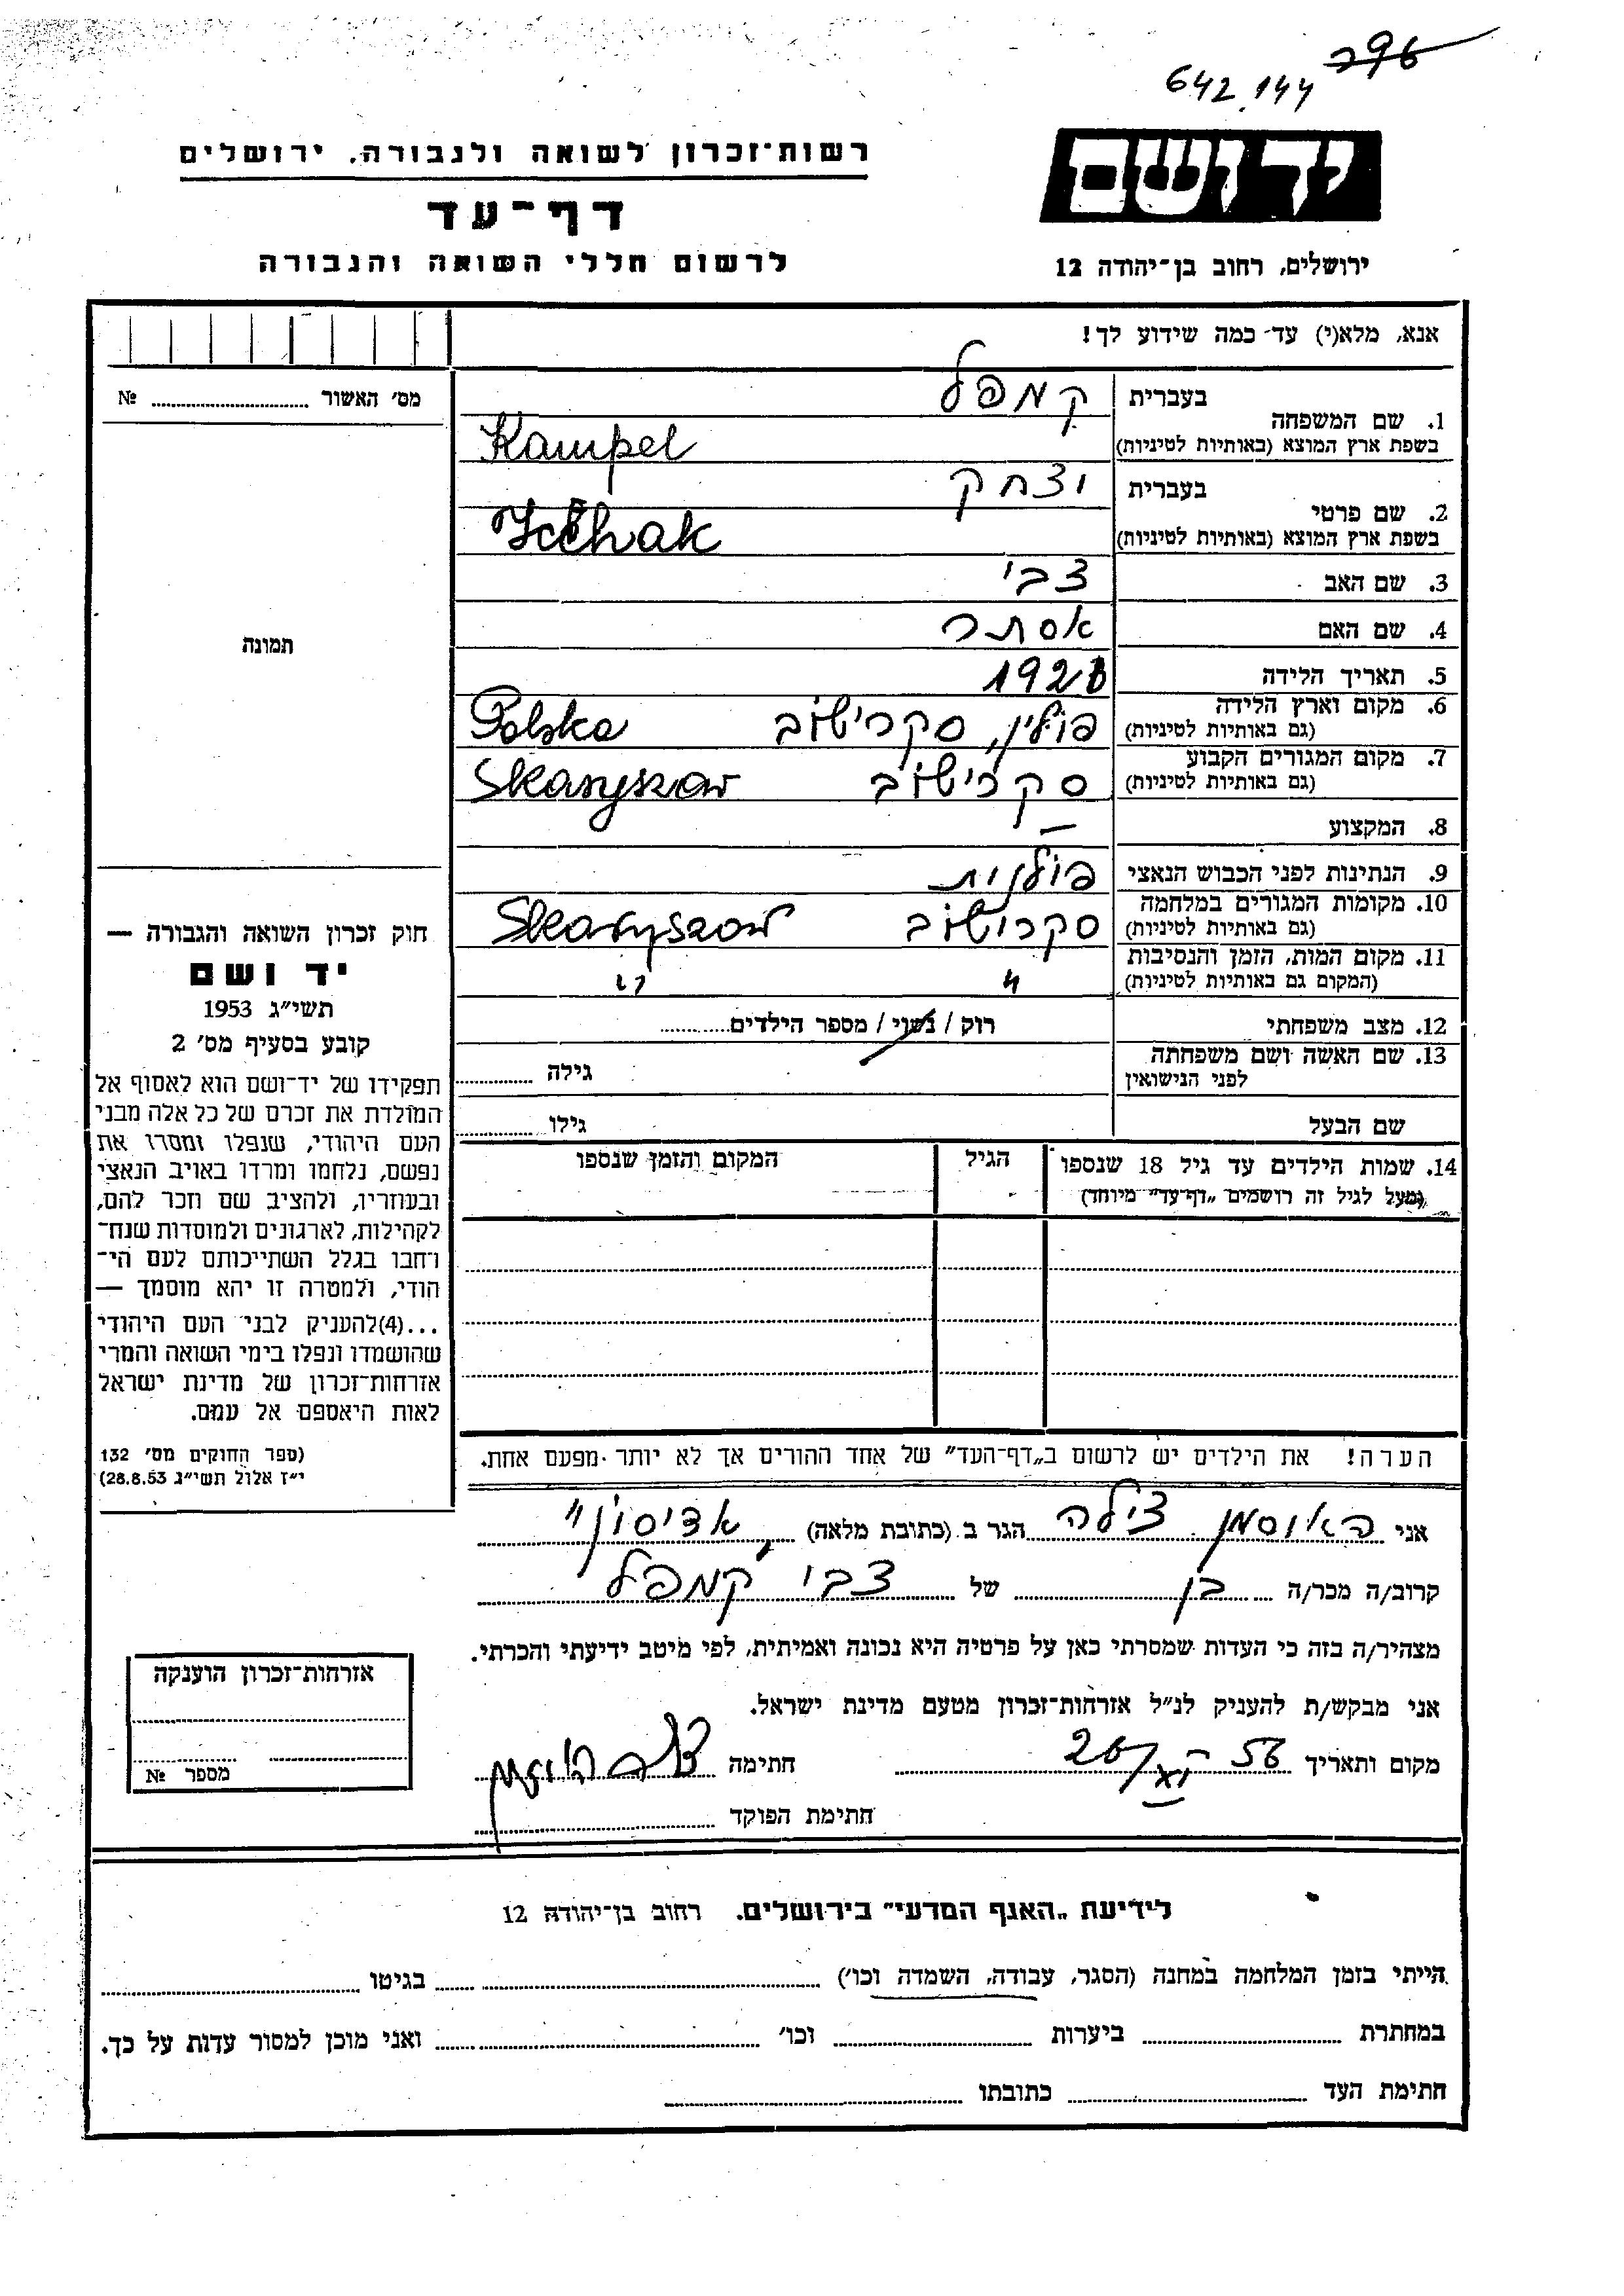 642.144 296
יד ושם
רשות־זכרון לשואה ולגבורה, ירושלים
דף־עד
ירושלים, רחוב בן־יהודה 12
לרשום חללי השואה והגבורה
אנא, מלא(י) עד כמה שידוע לך!
מס׳ האשור № ........
תמונה
בעברית קמפל
1. שם המשפחה
בשפת ארץ המוצא (באותיות לטיניות) Kampel
בעברית יצחק
2. שם פרטי
בשפת ארץ המוצא (באותיות לטיניות) Icchak
3. שם האב צבי
4. שם האם אסתר
5. תאריך הלידה 1928
6. מקום וארץ הלידה פולין, סקרישוב Polska
(גם באותיות לטיניות)
7. מקום המגורים הקבוע סקרישוב Skaryszew
(גם באותיות לטיניות)
8. המקצוע —
9. הנתינות לפני הכבוש הנאצי פולנית
10. מקומות המגורים במלחמה סקרישוב Skaryszow
(גם באותיות לטיניות)
11. מקום המות, הזמן והנסיבות " "
(המקום גם באותיות לטיניות)
12. מצב משפחתי רוק / נשוי / מספר הילדים........
13. שם האשה ושם משפחתה גילה ........
לפני הנישואין
שם הבעל גילו ........
14. שמות הילדים עד גיל 18 שנספו הגיל המקום והזמן שנספו
(מעל לגיל זה רושמים „דף־עד" מיוחד)
חוק זכרון השואה והגבורה —
יד ושם
תשי״ג 1953
קובע בסעיף מס׳ 2
תפקידו של יד־ושם הוא לאסוף אל
המולדת את זכרם של כל אלה מבני
העם היהודי, שנפלו ומסרו את
נפשם, נלחמו ומרדו באויב הנאצי
ובעוזריו, ולהציב שם וזכר להם,
לקהילות, לארגונים ולמוסדות שנח־
רחבו בגלל השתייכותם לעם הי־
הודי, ולמטרה זו יהא מוסמך —
...(4)להעניק לבני העם היהודי
שהושמדו ונפלו בימי השואה והמרי
אזרחות־זכרון של מדינת ישראל
לאות היאספם אל עמם.
(ספר החוקים מס׳ 132
י״ז אלול תשי״ג 28.8.53)
הערה! את הילדים יש לרשום ב„דף־העד" של אחד ההורים אך לא יותר מפעם אחת.
אני האוסמן צילה הגר ב (כתובת מלאה)
קרוב/ה מכר/ה בן של צבי קמפל
מצהיר/ה בזה כי העדות שמסרתי כאן על פרטיה היא נכונה ואמיתית, לפי מיטב ידיעתי והכרתי.
אני מבקש/ת להעניק לנ״ל אזרחות־זכרון מטעם מדינת ישראל.
מקום ותאריך חתימה
חתימת הפוקד
אזרחות־זכרון הוענקה
מספר №
לידיעת „האגף המדעי" בירושלים. רחוב בן־יהודה 12
הייתי בזמן המלחמה במחנה (הסגר, עבודה, השמדה וכו׳) ........ בגיטו ........
במחתרת ........ ביערות ........ וכו׳ ........ ואני מוכן למסור עדות על כך.
חתימת העד ........ כתובתו ........